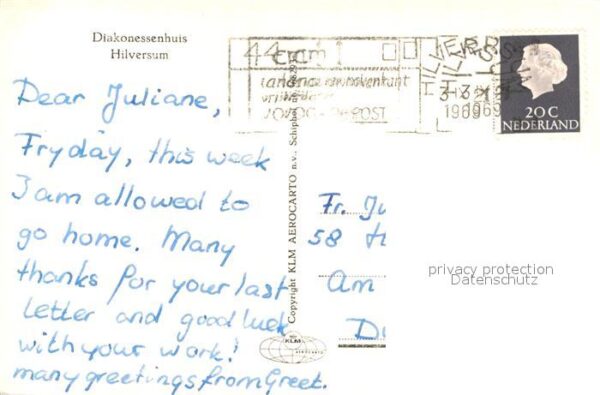 Diakonessenhuis
Hilversum
Dear Juliane,
Fryday, this week
I am allowed to
go home. Many
thanks for your last
letter and good luck
with your work!
many greetings from Greet.
Copyright KLM AEROCARTO n.v., Schiphol
KLM
AEROCARTO
44 cm
1969
20 C
NEDERLAND
Fr. Ju
58
Am
Du
privacy protection
Datenschutz